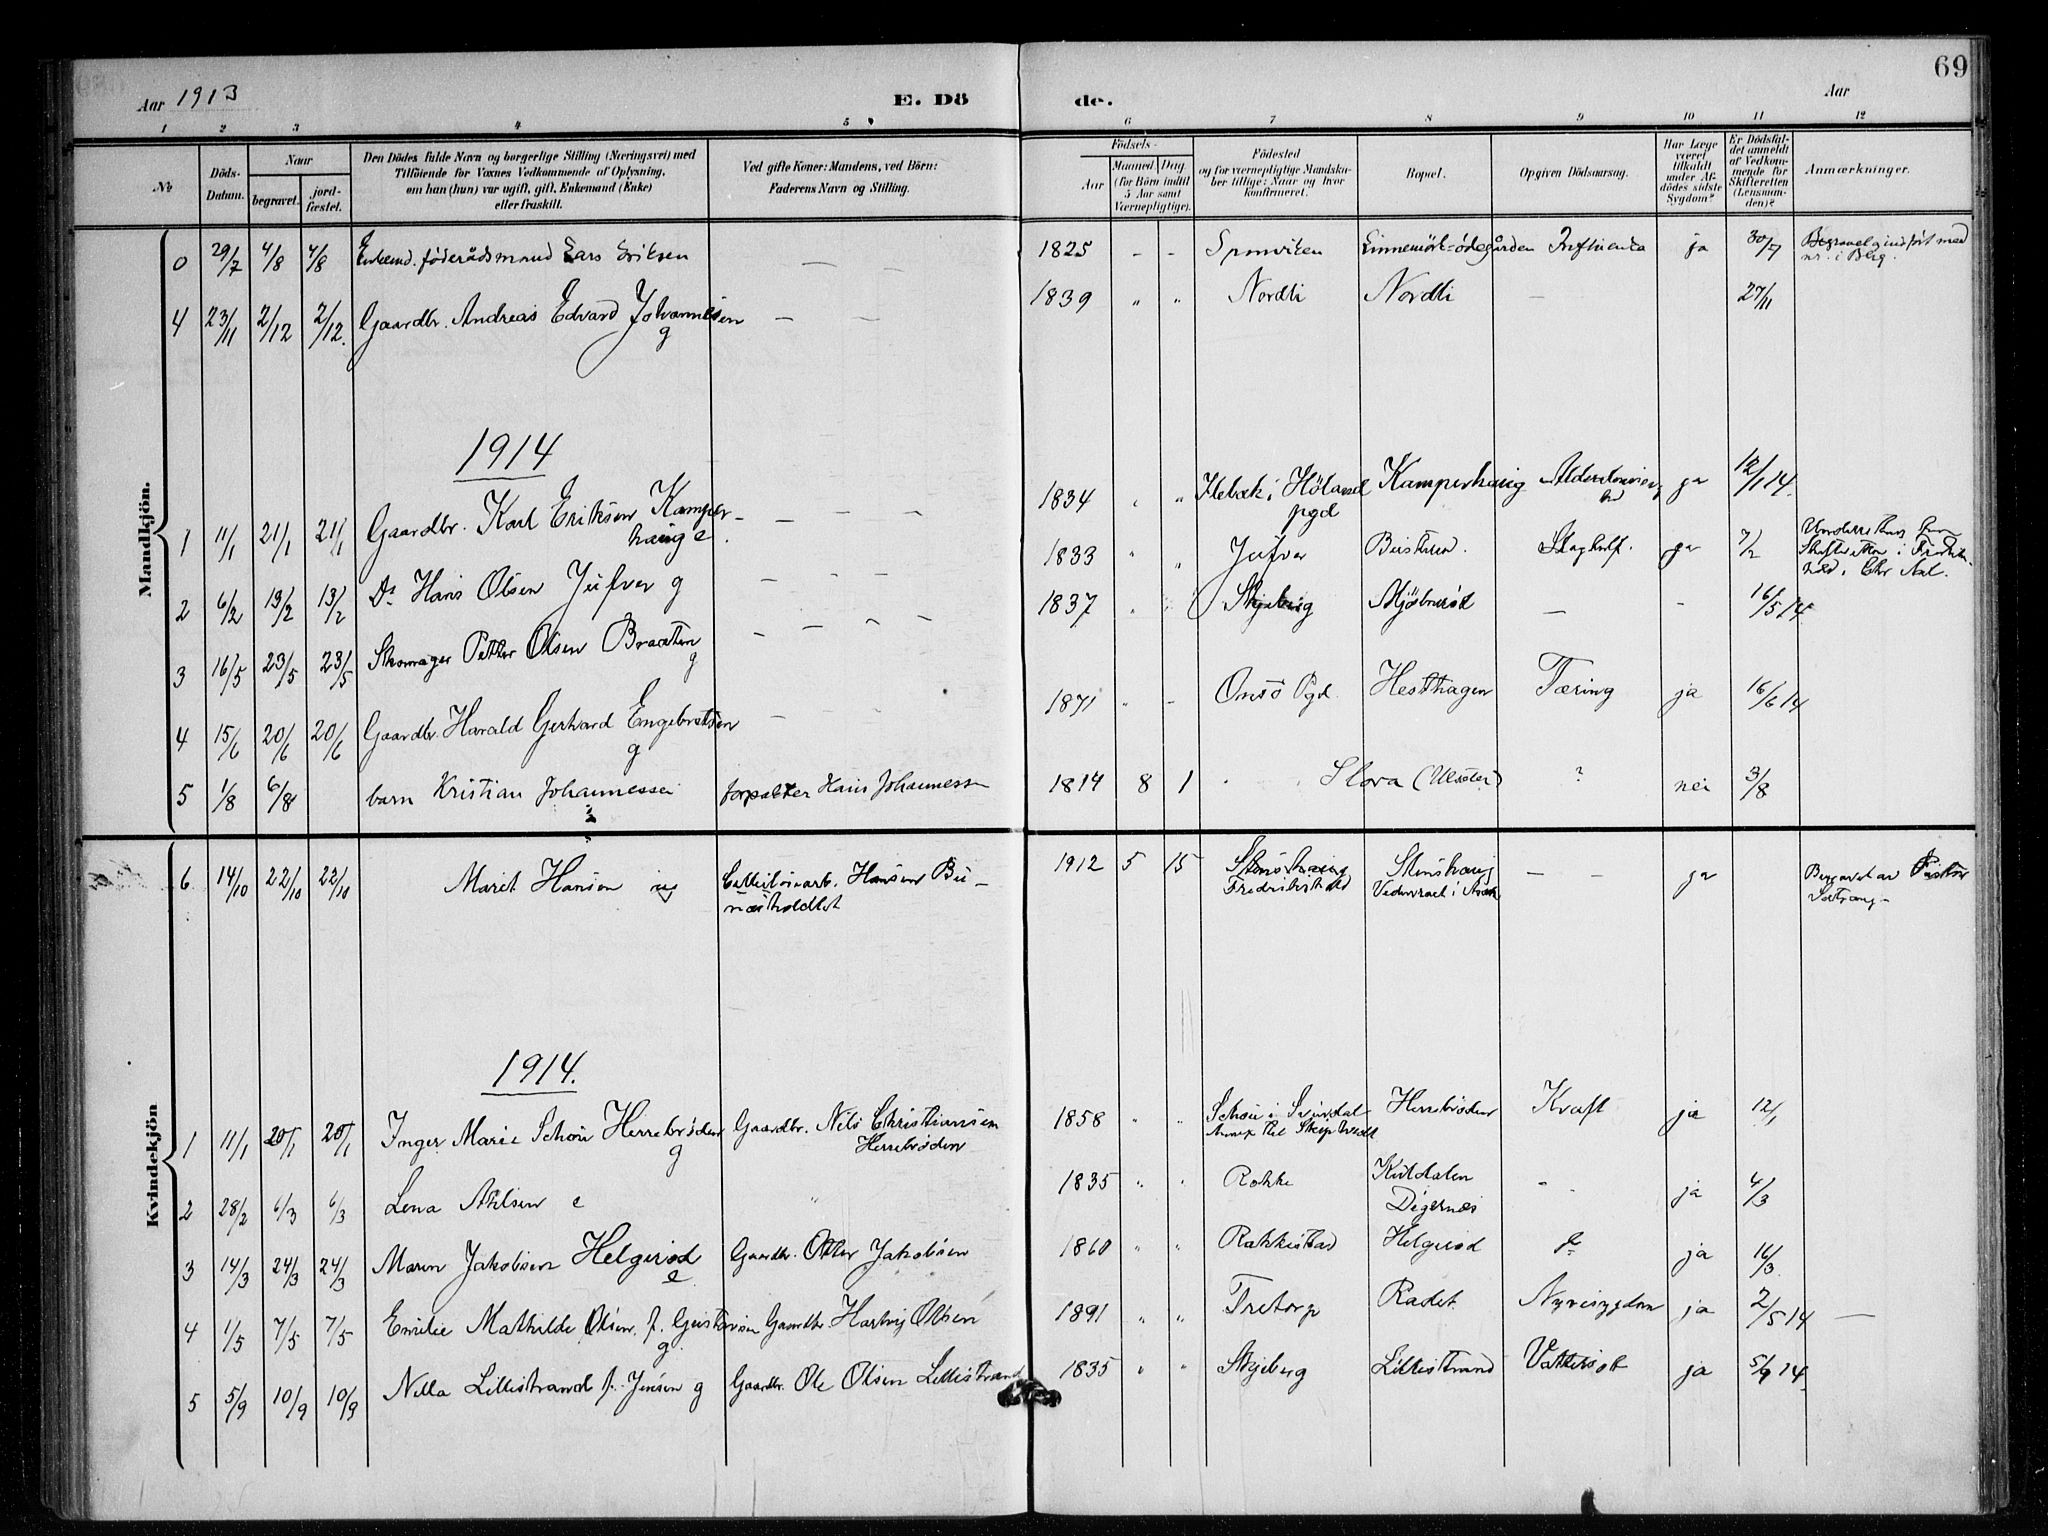 69
Aar 1913 E. Dö de. Aar
1 2 3 4 5 6 7 8 9 10 11 12
No
Döds-Datum.
Naar begravet. jord-fæstet.
Den Dödes fulde Navn og borgerlige Stilling (Næringsvei) med
Tilföiende for Voxnes Vedkommende af Oplysning,
om han (hun) var ugift, gift, Enkemand (Enke)
eller fraskilt.
Ved gifte Koner: Mandens, ved Börn:
Faderens Navn og Stilling.
Födsels-
Aar Maaned Dag
(for Börn indtil
5 Aar samt
Værnepligtige).
Födested
og for værnepligtige Mandska-
ber tillige: Naar og hvor
konfirmeret.
Bopæl.
Opgiven Dödsaarsag.
Har Læge
været
tilkaldt
under Af-
dödes sidste
Sygdom?
Er Dödsfal-
det anmeldt
af Vedkom-
mende for
Skifteretten
(Lensman-
den)?
Anmærkninger.
Mandkjön.
0 29/7 4/8 4/8 Enkemd. föderådsmand Lars Eriksen 1825 - - Sponviken Linnemört-ödegården Influenta ja 30/7 Begravel indfört med
nr. i Berg.
4 23/11 2/12 2/12. Gaardbr. Andreas Edvard Johannesen g — — 1839 " " Nordli Nordli — 27/11
1914
1 11/1 21/1 21/1 Gaardbr. Karl Eriksen Kamper-
haug e. — — — 1834 " " i Höland
pgd Kamperhaug ja 12/1 14.
2 6/2 13/2 13/2 Do Hans Olsen Jufver g — — — 1833 " " Jufver Slaghelf. ja 7/2
3 16/5 23/5 23/5 Skomager Petter Olsen Braaten g — — — — 1837 " " Skjeberg — - 16/5 14
4 15/6 20/6 20/6 Gaardbr. Harald Gerhard Engebretsen g — — — 1871 " - Onsö Pgd. Hesthagen Tæring ja 16/6 14
5 1/8 6/8 barn Kristian Johannessen forpakter Hans Johannessen 1814 8 1 Slora ? nei 3/8
6 14/10 22/10 22/10 Maret Hansen ug Hansen Bu-
næsholdtet 1912 5 15 Stenshaug
Fredrikshald Stenshaug
i — — ja Begravet av Pastor
Kvindekjön
1914.
1 11/1 20/1 20/1 Inger Marie Schou Herrebröden g Gaardbr. Nils Christiansen
Herrebröden 1858 " " Schou i
Annex til Herrebröden Kræft ja 12/1
2 28/2 6/3 6/3 Lena e " 1835 " " Rokke
Digernes - - ja 4/3
3 14/3 24/3 24/3 Maren Jakobsen Helgeröd e Gaardbr. Otter Jakobsen 1860 " " Rakkestad Helgeröd Do ja 16/3
4 1/5 7/5 7/5 Emilie Mathilde Olsen. f. Gustavsen g. Gaardbr. Hartvig Olsen 1891 " " Tretorp Rødet Nyresygdom ja 2/5 14 —
5 5/9 10/9 10/9 Nella Lillestrand f. Jensen g Gaardbr. Ole Olsen Lillestrand 1835 " " Skjeberg Lillestrand Vattersot ja 5/9 14.